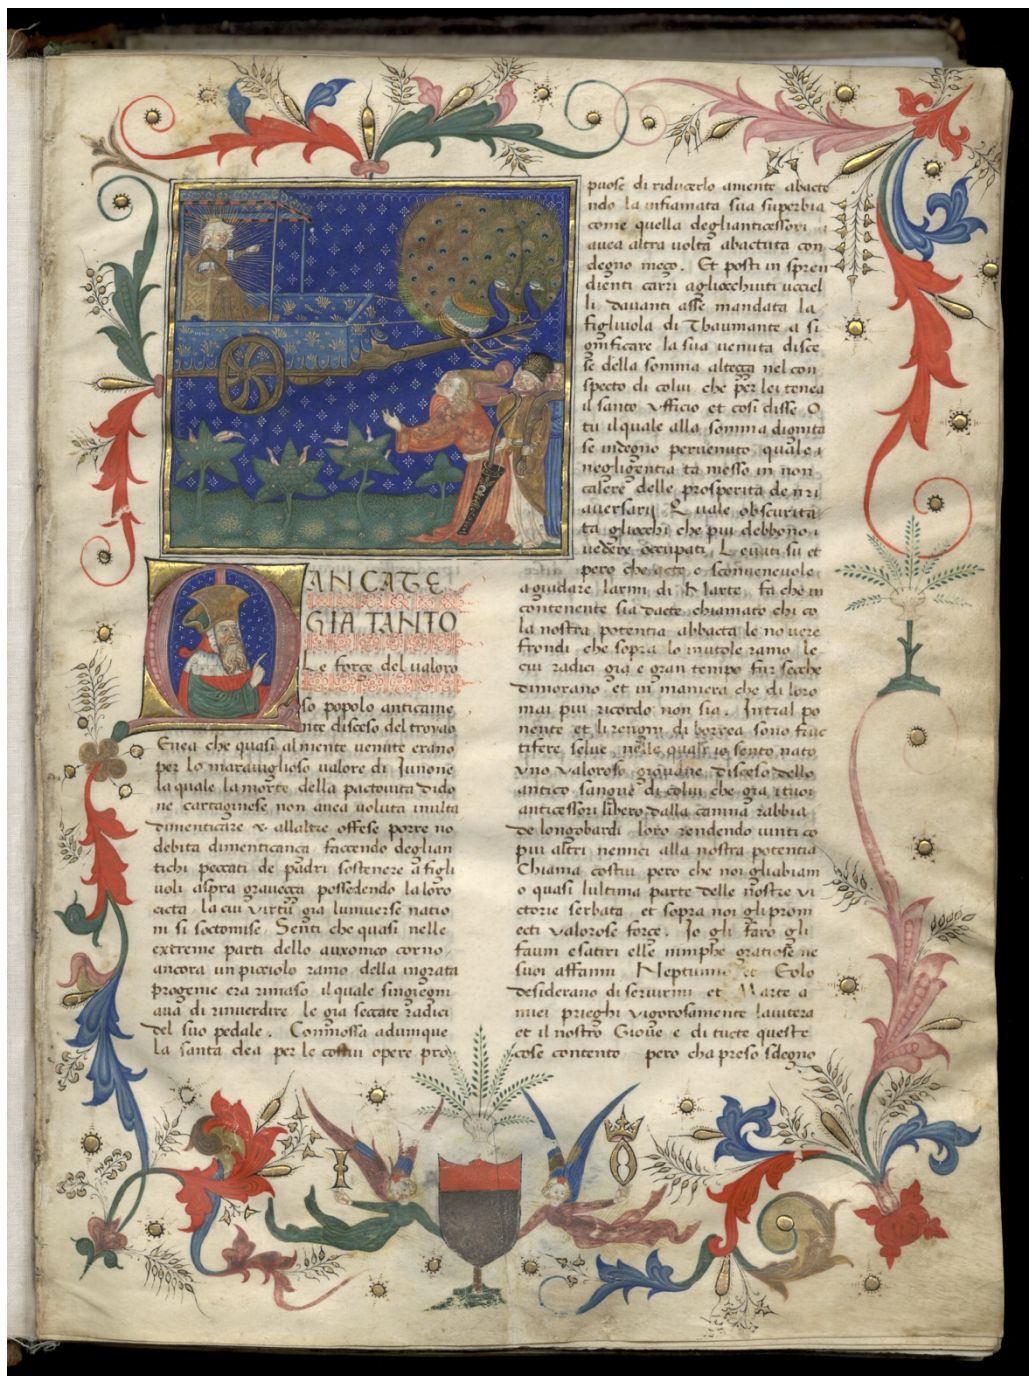 M
ANCATE
GIA TANTO
Le force del valoro
so popolo anticame
nte disceso del troyano
Enea che quasi al niente venute erano
per lo maraviglioso valore di Iunone
la quale la morte della pactovita Dido
ne cartaginese non avea voluta inulta
dimenticare & allaltre offese porre no
debita dimenticanca faccendo deglian
tichi peccati de padri sostenere a figli
uoli aspra gravecca possedendo la loro
cicta la cui virtu gia luniverse natio
ni si soctomise Senti che quasi nelle
extreme parti dello auxonico corno
ancora un picciolo ramo della ingrata
progenie era rimaso il quale singiegni
ava di rinverdire le gia seccate radici
del suo pedale. Commossa adumque
la santa dea per le costui opere pro
puose di riducerlo aniente abacte
ndo la infiamata sua superbia
come quella deglianticessori
avea altra volta abactuta con
degno meço. Et posti in spren
dienti carri agliocchiuti uccel
li davanti asse mandata la
figliuola di Thaumante a si
gnificare la sua venuta disce
se della somma altecca nel con
specto di colui che per lei tenea
il santo ufficio et cosi disse O
tu il quale alla somma dignita
se indegno pervenuto quale
negligentia ta messo in non
calere delle prosperita de nri
aversarij Quale obscurita
ta gliocchi che piu debbono
vedere occupati Levati su et
pero che gete e sconvenevole
a guidare larmi di Marte fa che in
contenente sia dacte chiamato chi co
la nostra potentia abbacta le novere
frondi che sopra lo inutole ramo le
cui radici gia e gran tempo fur secche
dimorano et in maniera che di loro
mai piu ricordo non sia. Intral po
nente et li rengni di borrea sono fruc
tifere selve nelle quali io sento nato
uno valoroso giovane disceso dello
antico sangue di colui che gia i tuoi
anticessori libero dalla canina rabbia
de longobardi loro rendendo vinti co
piu altri nemici alla nostra potentia
Chiama costui pero che noi gliabiam
o quasi lultima parte delle nostre vi
ctorie serbata et sopra noi gli prom
ecti valorose force. Io gli faro gli
fauni e satiri elle nimphe gratiose ne
suoi affanni Neptunno et Eolo
desiderano di servirmi et Marte a
miei prieghi vigorosamente lavitera
et il nostro Giove e di tucte queste
cose contento pero cha preso sdegno
I